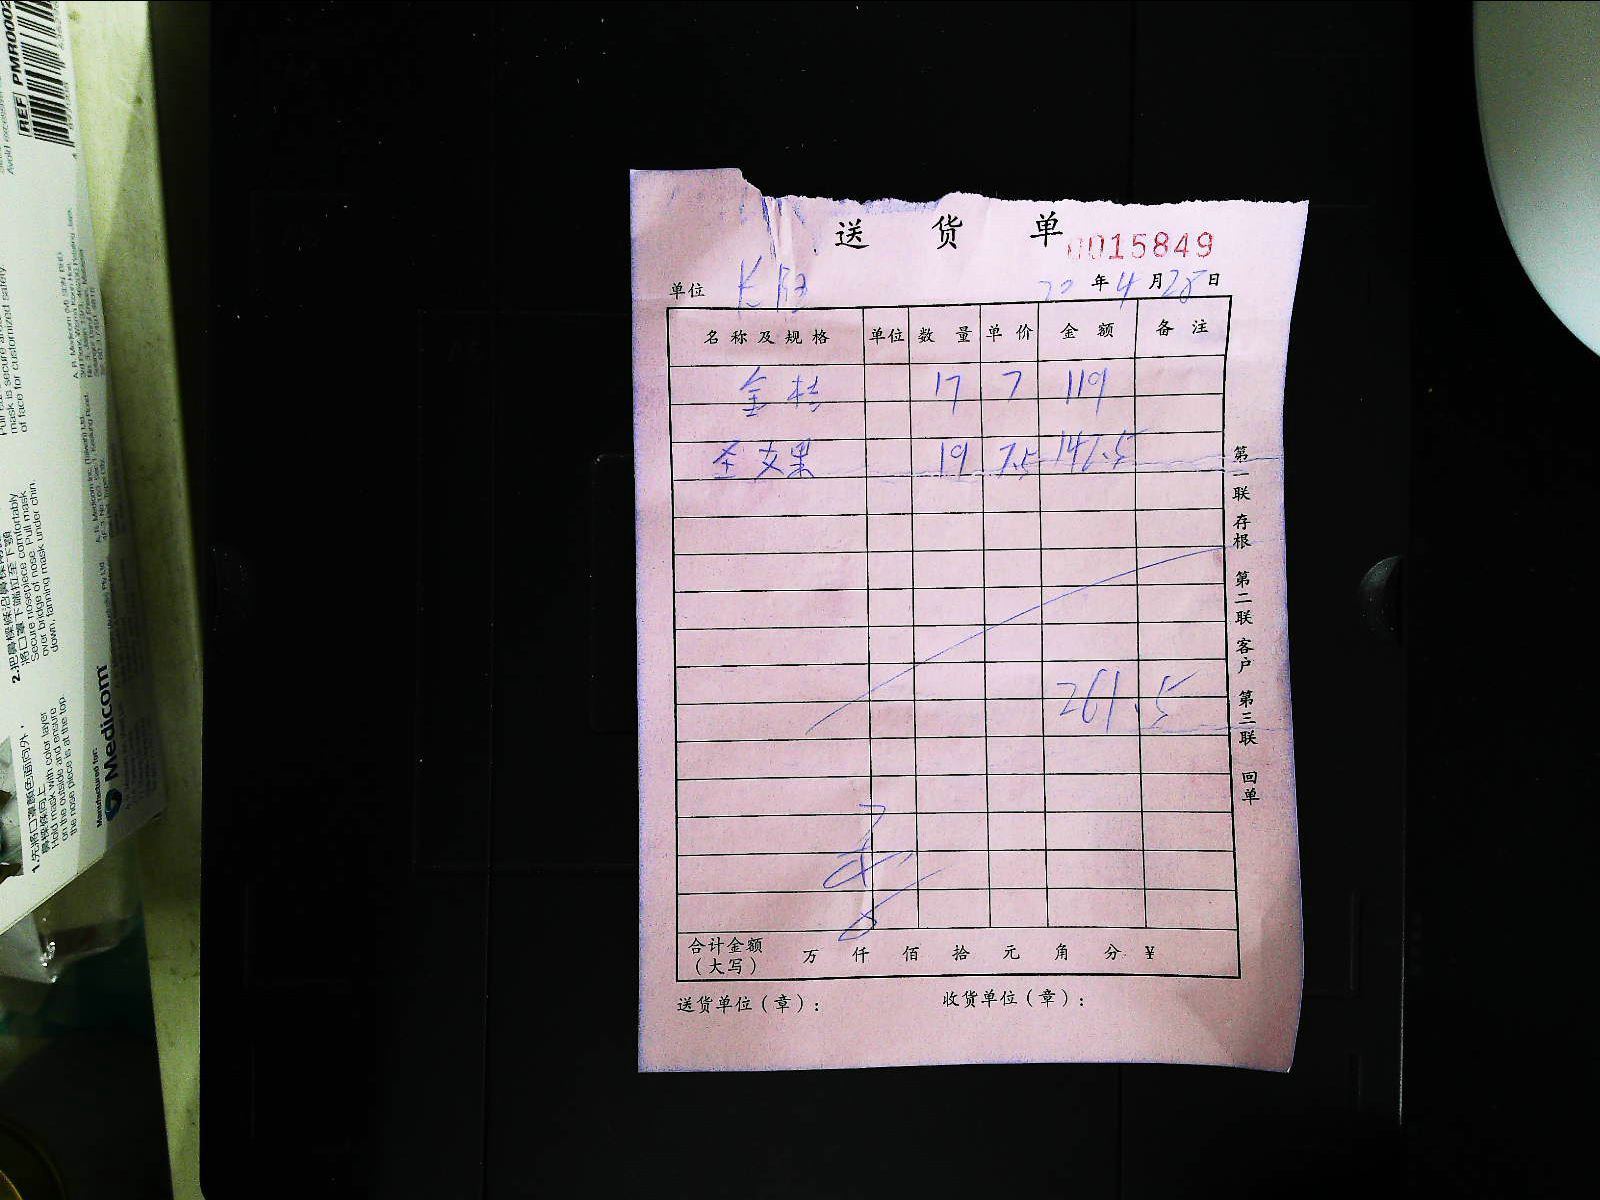 送 货 单
0015849
单位 长阳 20年4月28日
名称及规格 单位 数量 单价 金额 备注
金桔 17 7 119
圣女果 19 7.5 142.5
261.5
合计金额(大写) 万 仟 佰 拾 元 角 分 ¥
送货单位(章): 收货单位(章):
第一联 存根 第二联 客户 第三联 回单
REF PMR0002
mask is secure around
of face for customized safety.
2.把鼻樑條沿鼻樑
將口罩下端拉至下顎
Secure nosepiece comfortably
over bridge of nose. Pull mask
down, fanning mask under chin.
1.先將口罩顏色面向外,
鼻樑條向上
Hold mask with color layer
on the outside and ensure
the nose piece is at the top.
Manufactured for:
Medicom